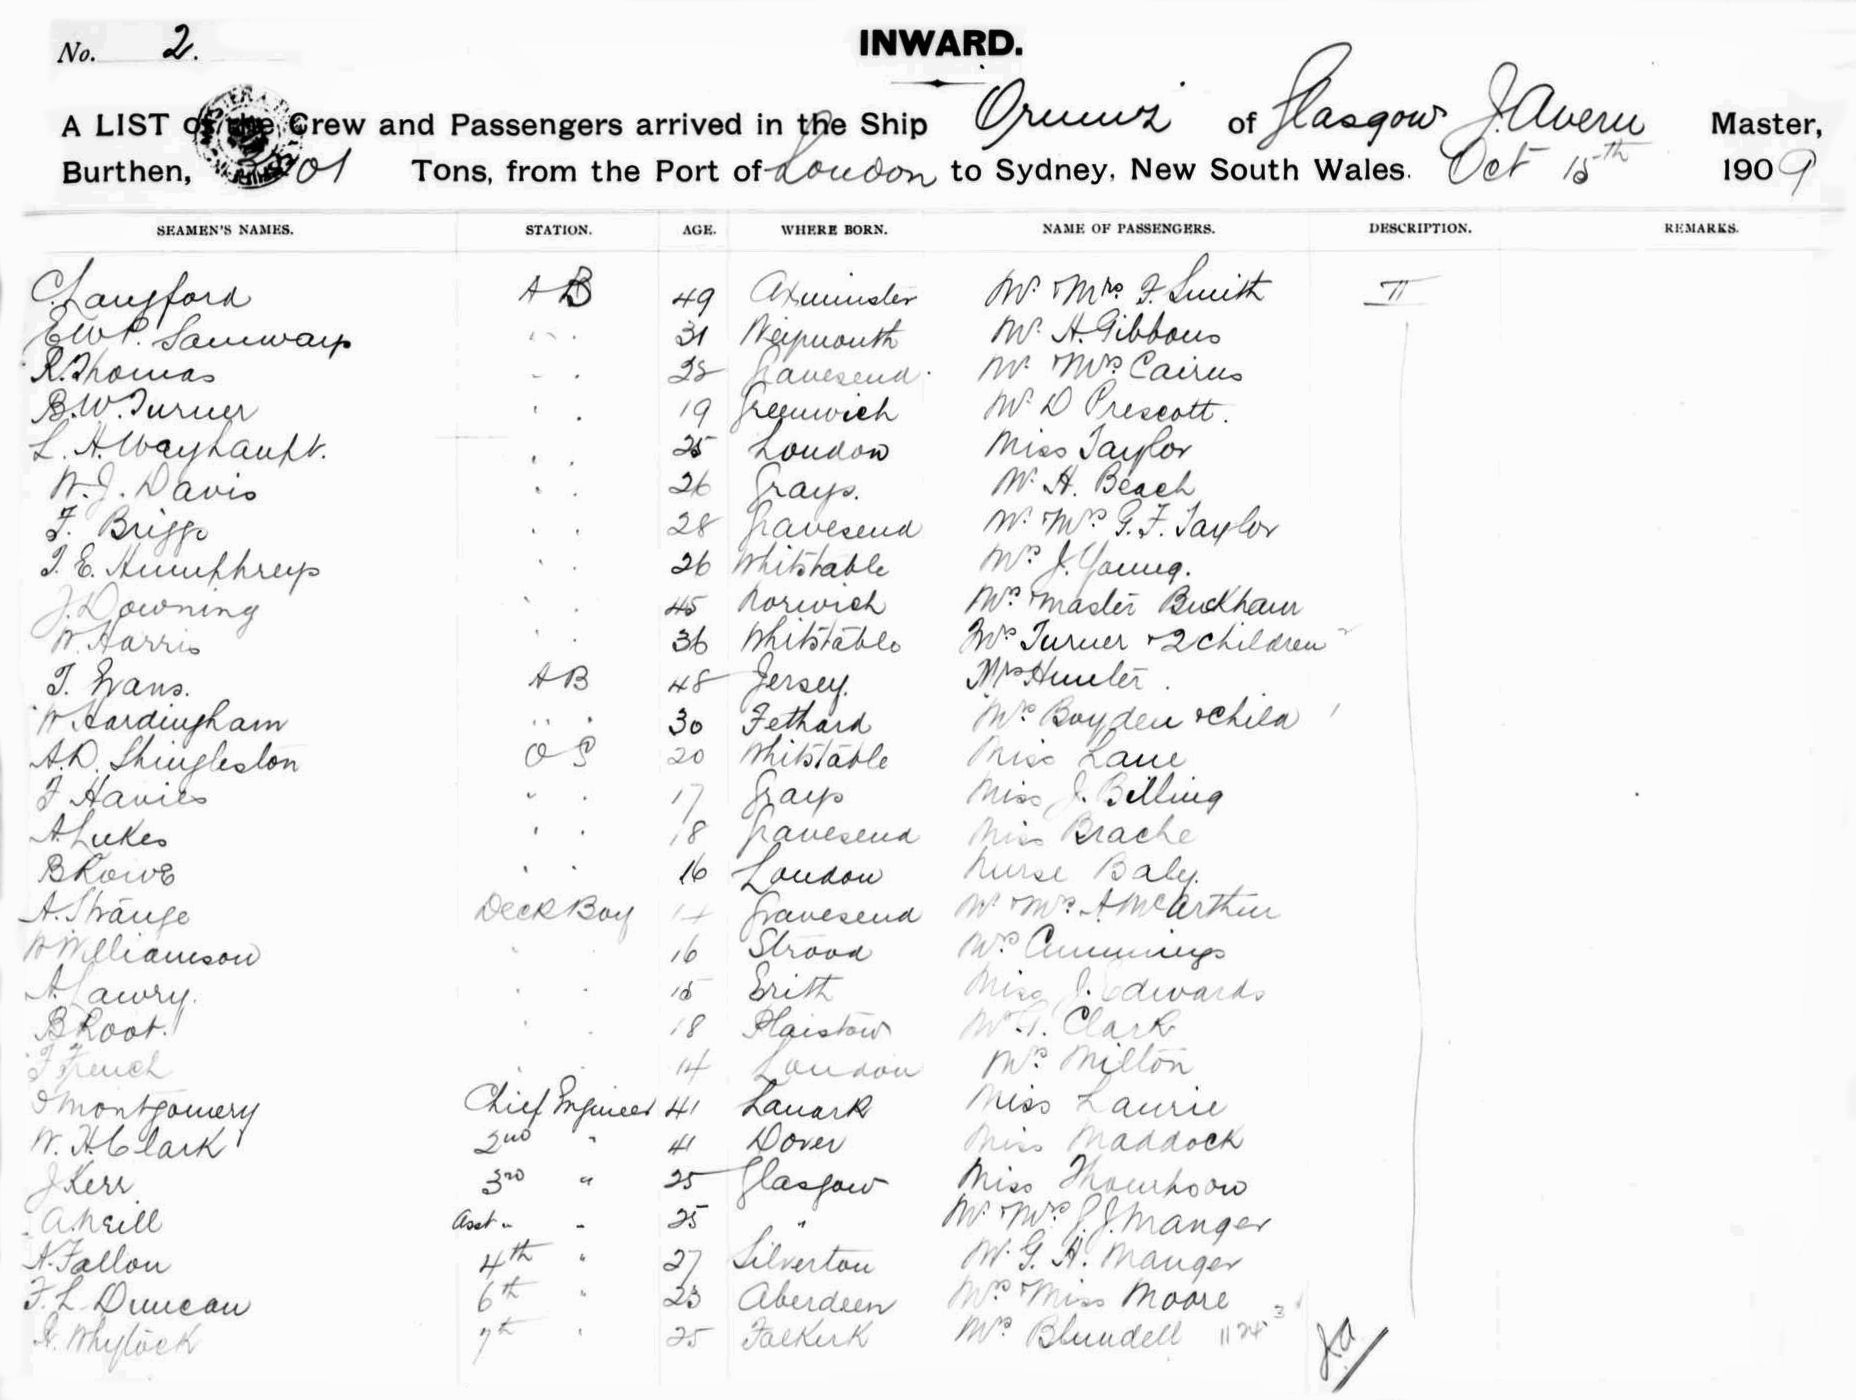 No. 2.
INWARD.
A LIST of the Crew and Passengers arrived in the Ship Ormuz of Glasgow J. Avern Master,
Burthen, 01 Tons, from the Port of London to Sydney, New South Wales. Oct 15th 1909
SEAMEN'S NAMES. STATION. AGE. WHERE BORN. NAME OF PASSENGERS. DESCRIPTION. REMARKS.
C. Langford AB 49 Axminster Mr & Mrs F. Smith II
E.W.P. Samways " " 31 Weymouth Mr H. Gibbons
R. Thomas " " 28 Gravesend Mr & Mrs Cairns
B.W. Turner " " 19 Greenwich Mr D Prescott.
L. H. Wayhaupt. " " 25 London Miss Taylor
W. J. Davis " " 26 Grays. Mr H. Beach
F. Briggs " " 28 Gravesend Mr & Mrs G. F. Taylor
T. E. Humphreys " " 26 Whitstable Mrs J. Young.
J. Downing " " 45 Norwich Mrs & Master Buckham
W. Harris " " 36 Whitstable Mrs Turner & 2 children
T. Evans. AB 48 Jersey. Mrs Hunter
W Hardingham " " 30 Fethard Mrs Boyden & child
A.D. Shingleston OS 20 Whitstable Miss Lane
F Havies " " 17 Grays Miss J. Billing
A Lukes " " 18 Gravesend Miss Brache
B Rowe " " 16 London Nurse Baly.
A. Strange Deck Boy 14 Gravesend Mr & Mrs A McArthur
W Williamson " " 16 Strood Mrs Cummings
A. Lawry. " " 15 Erith Miss J. Edwards
B Root. " " 18 Plaistow Mr T. Clark
F French " " 14 London Mrs Milton
J Montgomery Chief Engineer 41 Lanark Miss Laurie
W. H. Clark 2nd " 41 Dover Miss Maddock
J Kerr 3rd " 25 Glasgow Miss Thompson
A. Neill Asst " " 25 " Mr & Mrs J. J. Manger
A. Fallon 4th " 27 Silverton Mr G. H. Manger
F. L. Duncan 6th " 23 Aberdeen Mrs & Miss Moore
Whylock 7th " 25 Falkirk Mrs Blundell